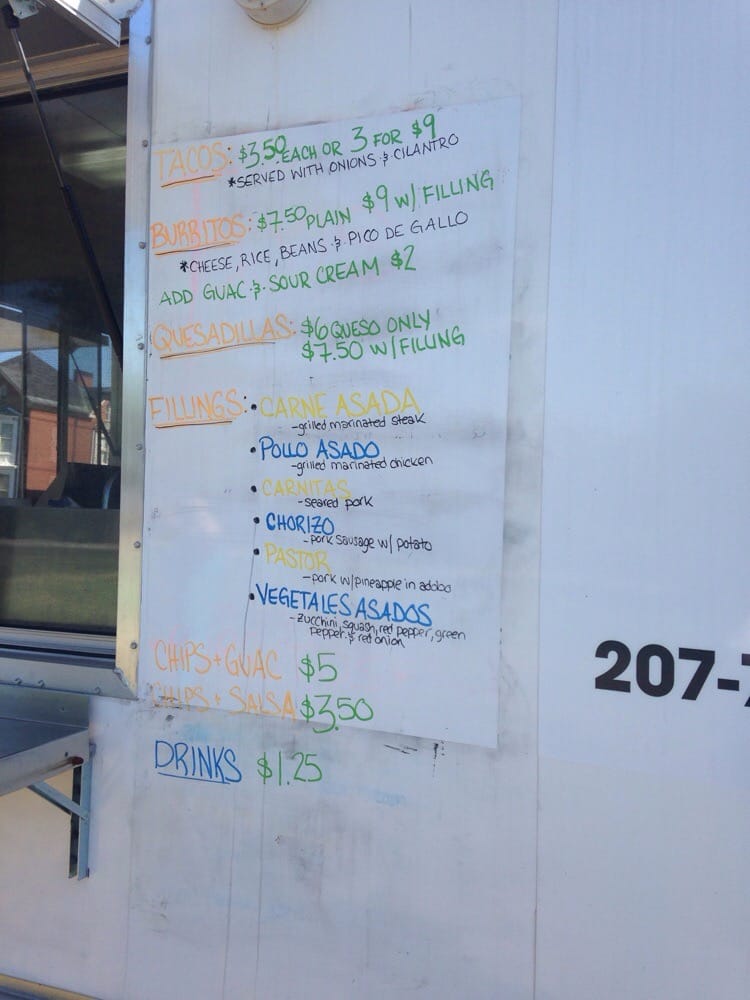 TACOS: $3.50 EACH OR 3 FOR $9
*SERVED WITH ONIONS & CILANTRO
BURRITOS: $7.50 PLAIN $9 W/ FILLING
*CHEESE, RICE, BEANS & PICO DE GALLO
ADD GUAC & SOUR CREAM $2
QUESADILLAS: $6 QUESO ONLY
$7.50 W/ FILLING
FILLINGS: • CARNE ASADA
-grilled marinated steak
• POLLO ASADO
-grilled marinated chicken
• CARNITAS
-seared pork
• CHORIZO
-pork sausage w/ potato
• PASTOR
-pork w/pineapple in adobo
• VEGETALES ASADOS
-zucchini, squash, red pepper, green
pepper & red onion
CHIPS + GUAC $5
CHIPS + SALSA $3.50
DRINKS $1.25
207-7